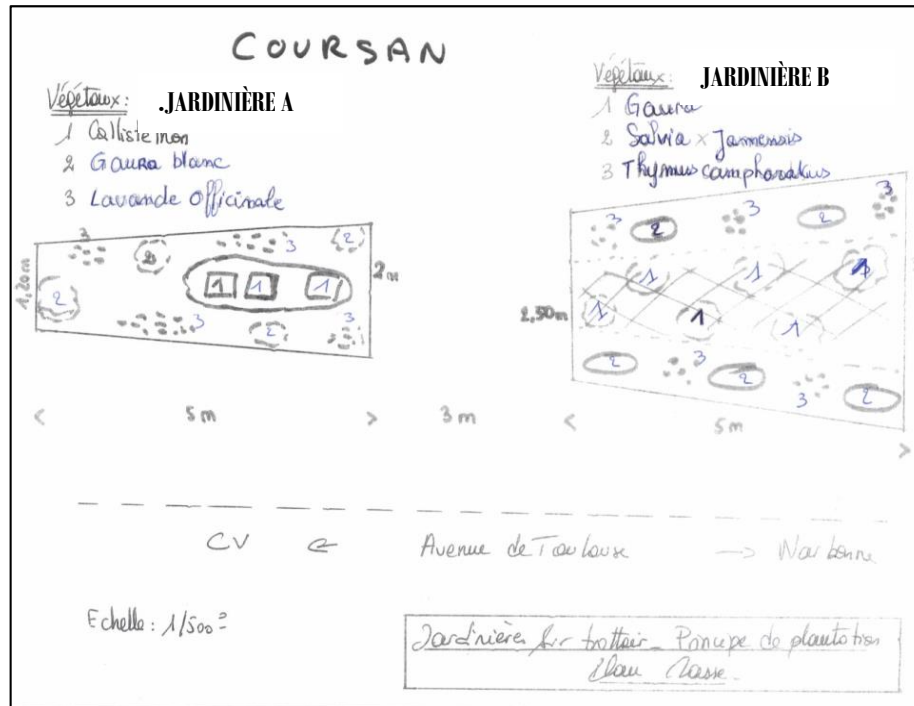 COURSAN
Végétaux: .JARDINIÈRE A
1 Callistemon
2 Gaura blanc
3 Lavande Officinale
Végétaux: JARDINIÈRE B
1 Gaura
2 Salvia x Jamensis
3 Thymus camphoratus
3 2 3 2
1,20m 2 1 1 1 2m
3 2 3
3 2 3 2 3
1 1 1
2,50m 1 1 1
2 3 2 3 2
< 5m > 3m < 5m >
CV ← Avenue de Toulouse → Narbonne
Echelle: 1/500
Jardinières sur trottoir_ Principe de plantation
Plan Masse.